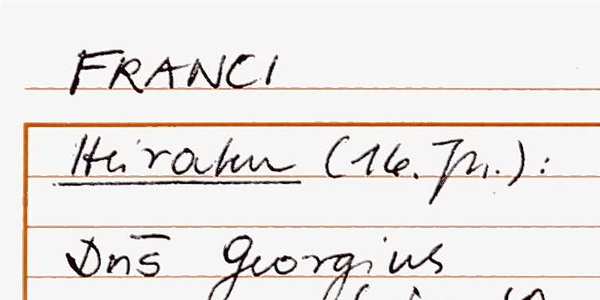 FRANCI
Heiraten (16. Jh.):
Dns̄ Georgius